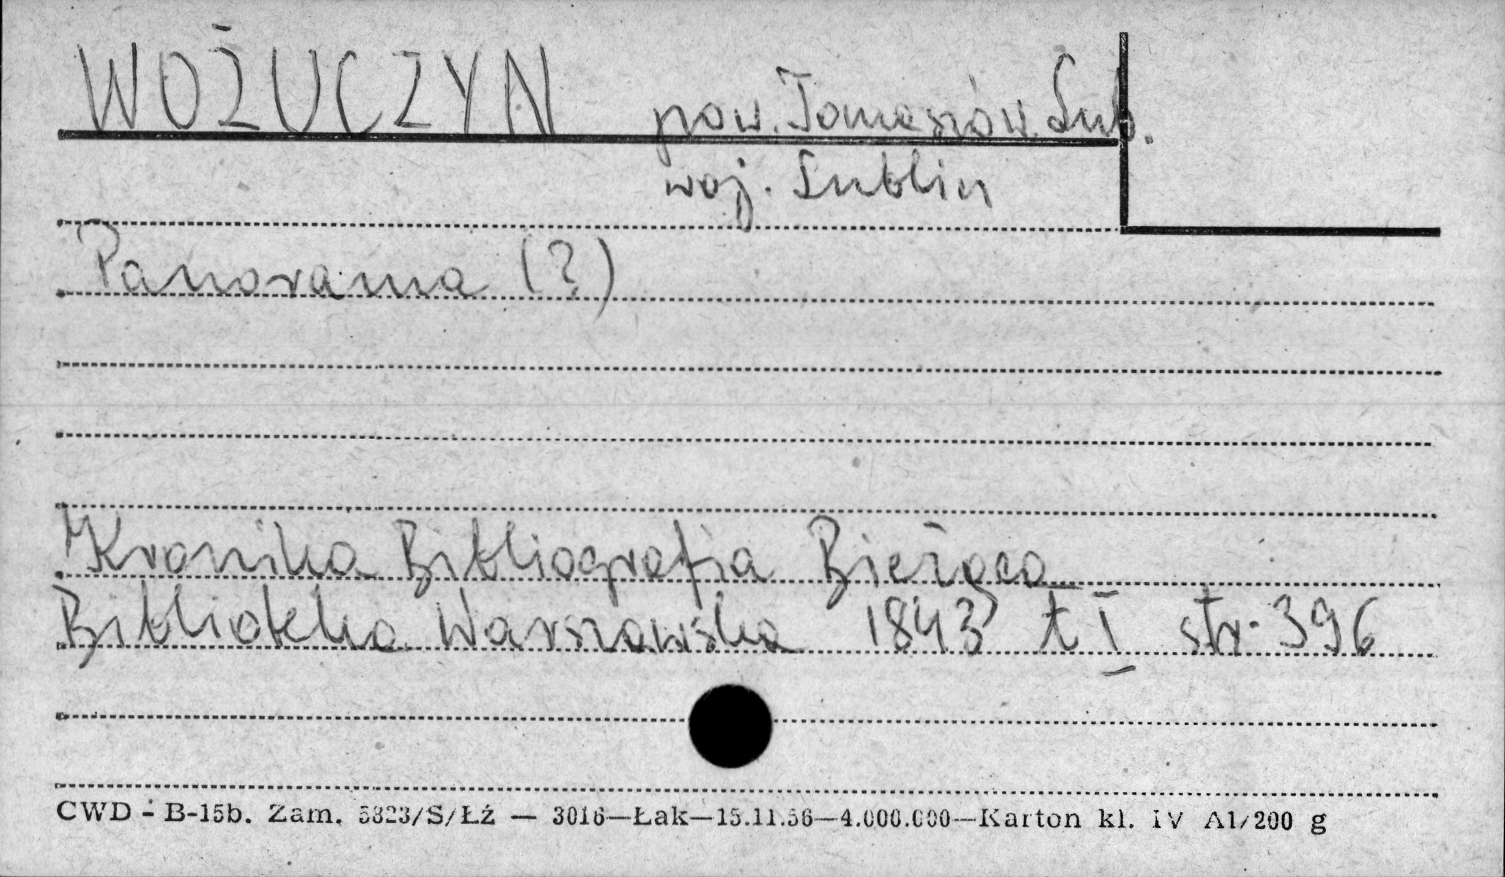 WOŻUCZYN pow. Tomaszów Lub.
woj. Lublin
Panorama (?)
Kronika Bibliografia Bieżąca
Biblioteka Warszawska 1843 t I str. 396
CWD - B-15b. Zam. 5323/S/Łź — 3016—Łak—15.11.56—4.000.000—Karton kl. IV A1/200 g